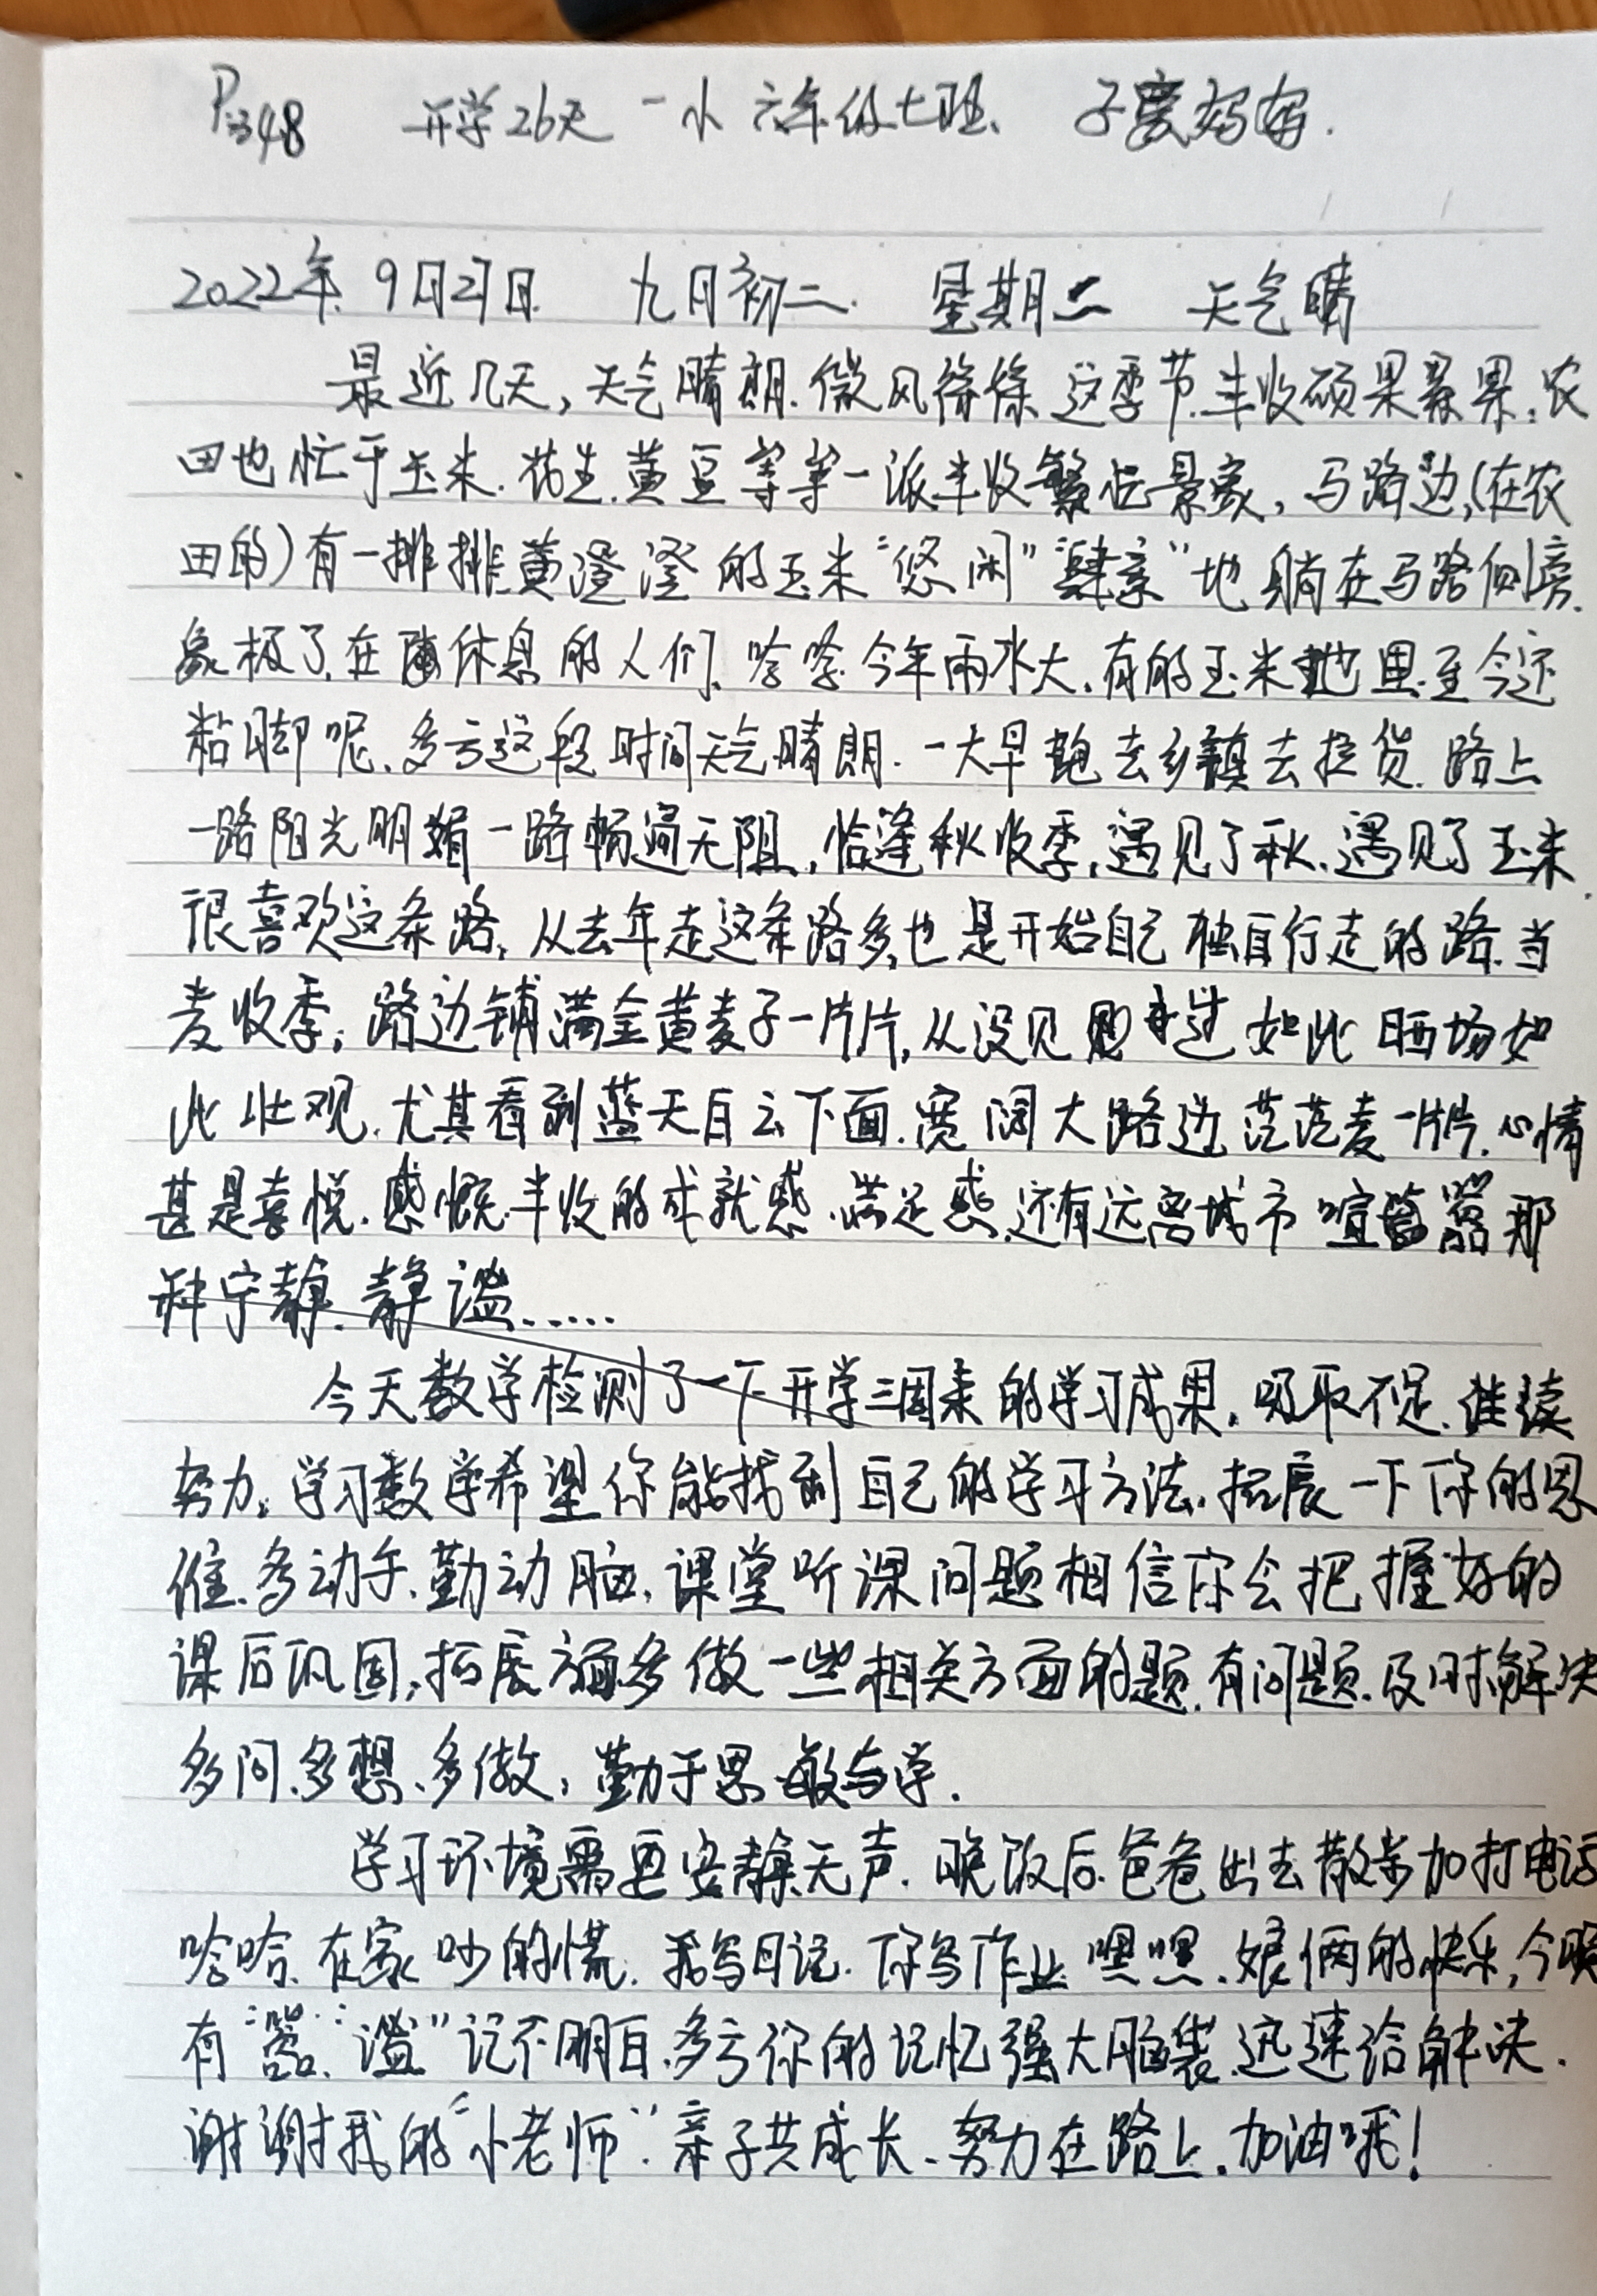 P348 开学26天 一小 六年级七班 子宸妈妈.
2022年 9月27日 九月初二. 星期二 天气晴
最近几天,天气晴朗.微风徐徐 这季节.丰收硕果累累,农
田也忙于玉米.花生.黄豆等等一派丰收繁忙景象,马路边,(在农
田的)有一排排黄澄澄的玉米“悠闲”“肆意”地躺在马路侧旁.
象极了在休息的人们、哈哈.今年雨水大.有的玉米地里至今还
粘脚呢.多亏这段时间天气晴朗.一大早跑去乡镇去拉货.路上
一路阳光明媚一路畅通无阻,恰逢秋收季,遇见了秋.遇见了玉米.
很喜欢这条路,从去年走这条路多,也是开始自己独自行走的路.当
麦收季,路边铺满金黄麦子一片片,从没见过如此晒场如
此壮观.尤其看到蓝天白云下面.宽阔大路边.茫茫麦一片片.心情
甚是喜悦.感慨丰收的成就感.满足感.还有远离城市喧嚣那
种宁静.静谧……
今天数学检测了一下开学三周来的学习成果.吸取不足.继续
努力.学习数学希望你能找到自己的学习方法.拓展一下你的思
维.多动手.勤动脑.课堂听课问题相信你会把握好的
课后巩固,拓展方面多做一些相关方面的题.有问题.及时解决
多问.多想、多做,勤于思 敏与学.
学习环境需要安静无声.晚饭后.爸爸出去散步加打电话
哈哈.在家吵的慌.我写日记.你写作业.嘿嘿.娘俩的快乐,今晚
有“嚣”“谧”记不明白.多亏你的记忆强大脑袋.迅速给解决.
谢谢我的“小老师”.亲子共成长、努力在路上.加油哦!